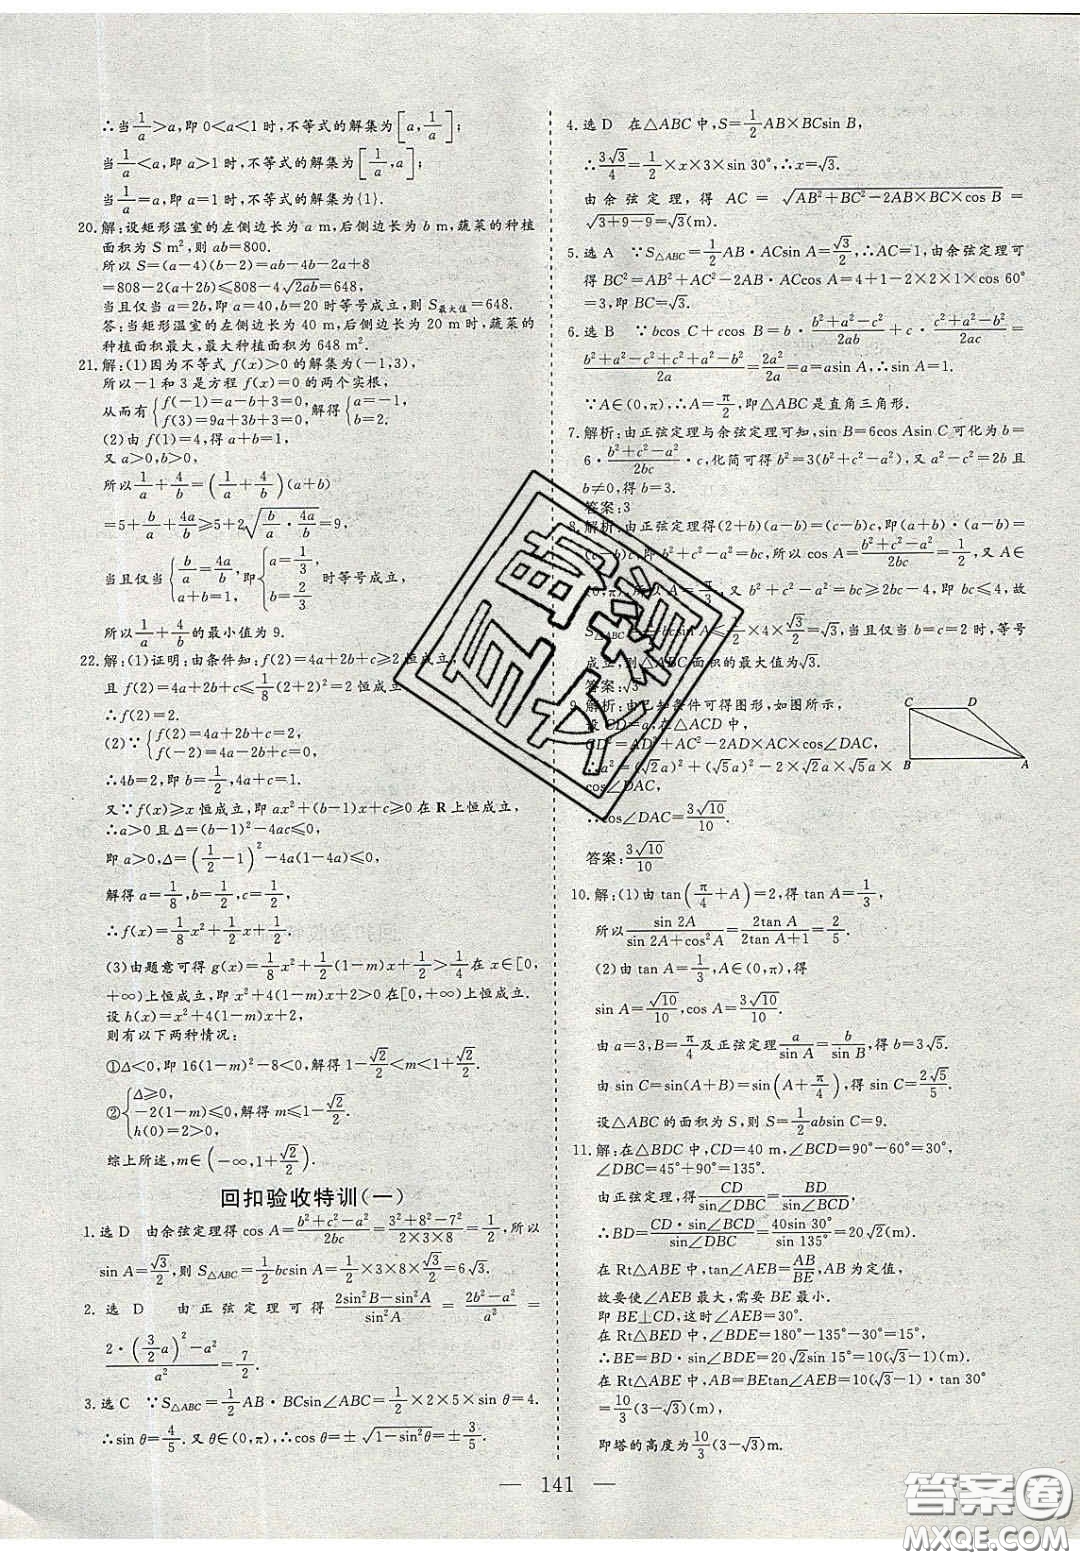 ∴当1/a>a,即0<a<1时,不等式的解集为[a,1/a];
当1/a<a,即a>1时,不等式的解集为[1/a,a];
当1/a=a,即a=1时,不等式的解集为{1}.
20.解:设矩形温室的左侧边长为a m,后侧边长为b m,蔬菜的种植
面积为S m²,则ab=800.
所以S=(a-4)(b-2)=ab-4b-2a+8
=808-2(a+2b)≤808-4√(2ab)=648,
当且仅当a=2b,即a=40,b=20时等号成立,则S最大值=648.
答:当矩形温室的左侧边长为40 m,后侧边长为20 m时,蔬菜的
种植面积最大,最大种植面积为648 m².
21.解:(1)因为不等式f(x)>0的解集为(-1,3),
所以-1和3是方程f(x)=0的两个实根,
从而有{f(-1)=a-b+3=0, f(3)=9a+3b+3=0,解得{a=-1, b=2.
(2)由f(1)=4,得a+b=1,
又a>0,b>0,
所以1/a+4/b=(1/a+4/b)(a+b)
=5+b/a+4a/b≥5+2√(b/a·4a/b)=9,
当且仅当{b/a=4a/b, a+b=1,即{a=1/3, b=2/3时等号成立,
所以1/a+4/b的最小值为9.
22.解:(1)证明:由条件知:f(2)=4a+2b+c≥2恒成立,
且f(2)=4a+2b+c≤1/8(2+2)²=2恒成立
∴f(2)=2.
(2)∵{f(2)=4a+2b+c=2, f(-2)=4a-2b+c=0,
∴4b=2,即b=1/2,4a+c=1,
又∵f(x)≥x恒成立,即ax²+(b-1)x+c≥0在R上恒成立,
∴a>0且Δ=(b-1)²-4ac≤0,
即a>0,Δ=(1/2-1)²-4a(1-4a)≤0,
解得a=1/8,b=1/2,c=1/2,
∴f(x)=1/8x²+1/2x+1/2.
(3)由题意可得g(x)=1/8x²+1/2(1-m)x+1/2>1/4在x∈[0,
+∞)上恒成立,即x²+4(1-m)x+2>0在[0,+∞)上恒成立.
设h(x)=x²+4(1-m)x+2,
则有以下两种情况:
①Δ<0,即16(1-m)²-8<0,解得1-√2/2<m<1+√2/2.
②{Δ≥0, -2(1-m)≤0, h(0)=2>0,解得m≤1-√2/2.
综上所述,m∈(-∞,1+√2/2).
回扣验收特训(一)
1.选D 由余弦定理得cos A=(b²+c²-a²)/2bc=(3²+8²-7²)/(2×3×8)=1/2,所以
sin A=√3/2,则S△ABC=1/2bcsin A=1/2×3×8×√3/2=6√3.
2.选D 由正弦定理可得(2sin²B-sin²A)/sin²A=(2b²-a²)/a²=
(2·(3/2a)²-a²)/a²=7/2.
3.选C ∵S△ABC=1/2AB·BCsin∠ABC=1/2×2×5×sin θ=4.
∴sin θ=4/5.又θ∈(0,π),∴cos θ=±√(1-sin²θ)=±3/5.
4.选D 在△ABC中,S=1/2AB×BCsin B,
∴3√3/4=1/2×x×3×sin 30°,∴x=√3.
由余弦定理,得AC=√(AB²+BC²-2AB×BC×cos B)=
√(3+9-9)=√3(m).
5.选A ∵S△ABC=1/2AB·ACsin A=√3/2,∴AC=1,由余弦定理可
得BC²=AB²+AC²-2AB·ACcos A=4+1-2×2×1×cos 60°
=3,即BC=√3.
6.选B ∵bcos C+ccos B=b·(b²+a²-c²)/2ab+c·(c²+a²-b²)/2ac=
(b²+a²-c²+c²+a²-b²)/2a=2a²/2a=a=asin A,∴sin A=1.
∵A∈(0,π),∴A=π/2,即△ABC是直角三角形.
7.解析:由正弦定理与余弦定理可知,sin B=6cos Asin C可化为b=
6·(b²+c²-a²)/2bc·c,化简可得b²=3(b²+c²-a²),又a²-c²=2b且
b≠0,得b=3.
答案:3
8.解析:由正弦定理得(2+b)(a-b)=(c-b)c,即(a+b)·(a-b)=
(c-b)c,即b²+c²-a²=bc,所以cos A=(b²+c²-a²)/2bc=1/2,又A∈
(0,π),所以A=π/3,又b²+c²-a²=bc≥2bc-4,即bc≤4,故
S△ABC=1/2bcsin A≤1/2×4×√3/2=√3,当且仅当b=c=2时,等号
成立,则△ABC面积的最大值为√3.
答案:√3
9.解析:由已知条件可得图形,如图所示,
设CD=a,在△ACD中,
CD²=AD²+AC²-2AD×AC×cos∠DAC,
∴a²=(√2a)²+(√5a)²-2×√2a×√5a×
cos∠DAC,
∴cos∠DAC=3√10/10.
答案:3√10/10
C D
B A
10.解:(1)由tan(π/4+A)=2,得tan A=1/3,
所以sin 2A/(sin 2A+cos²A)=2tan A/(2tan A+1)=2/5.
(2)由tan A=1/3,A∈(0,π),得
sin A=√10/10,cos A=3√10/10.
由a=3,B=π/4及正弦定理a/sin A=b/sin B,得b=3√5.
由sin C=sin(A+B)=sin(A+π/4),得sin C=2√5/5.
设△ABC的面积为S,则S=1/2absin C=9.
11.解:在△BDC中,CD=40 m,∠BCD=90°-60°=30°,
∠DBC=45°+90°=135°.
由正弦定理,得CD/sin∠DBC=BD/sin∠BCD,
∴BD=CD·sin∠BCD/sin∠DBC=40sin 30°/sin 135°=20√2(m).
在Rt△ABE中,tan∠AEB=AB/BE,AB为定值,
故要使∠AEB最大,需要BE最小.
即BE⊥CD,这时∠AEB=30°.
在Rt△BED中,∠BDE=180°-135°-30°=15°,
∴BE=BD·sin∠BDE=20√2sin 15°=10(√3-1)(m).
在Rt△ABE中,AB=BEtan∠AEB=10(√3-1)×tan 30°
=10/3(3-√3)(m),
即塔的高度为10/3(3-√3)m.
— 141 —
答案圈
MXQE.COM